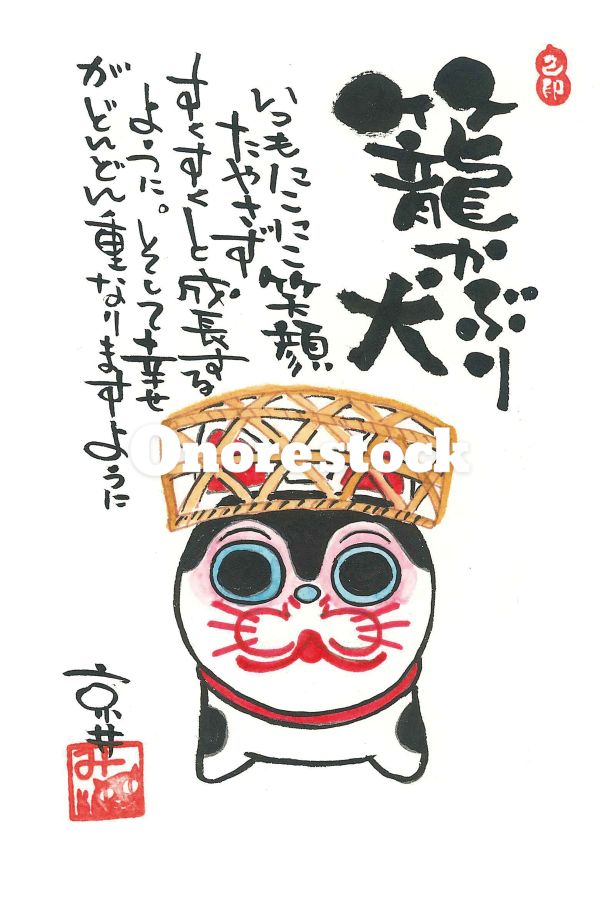 籠かぶり
犬
いつもにこにこ笑顔
たやさず
すくすくと成長する
ように。そして幸せ
がどんどん重なりますように
京井
み
Onorestock